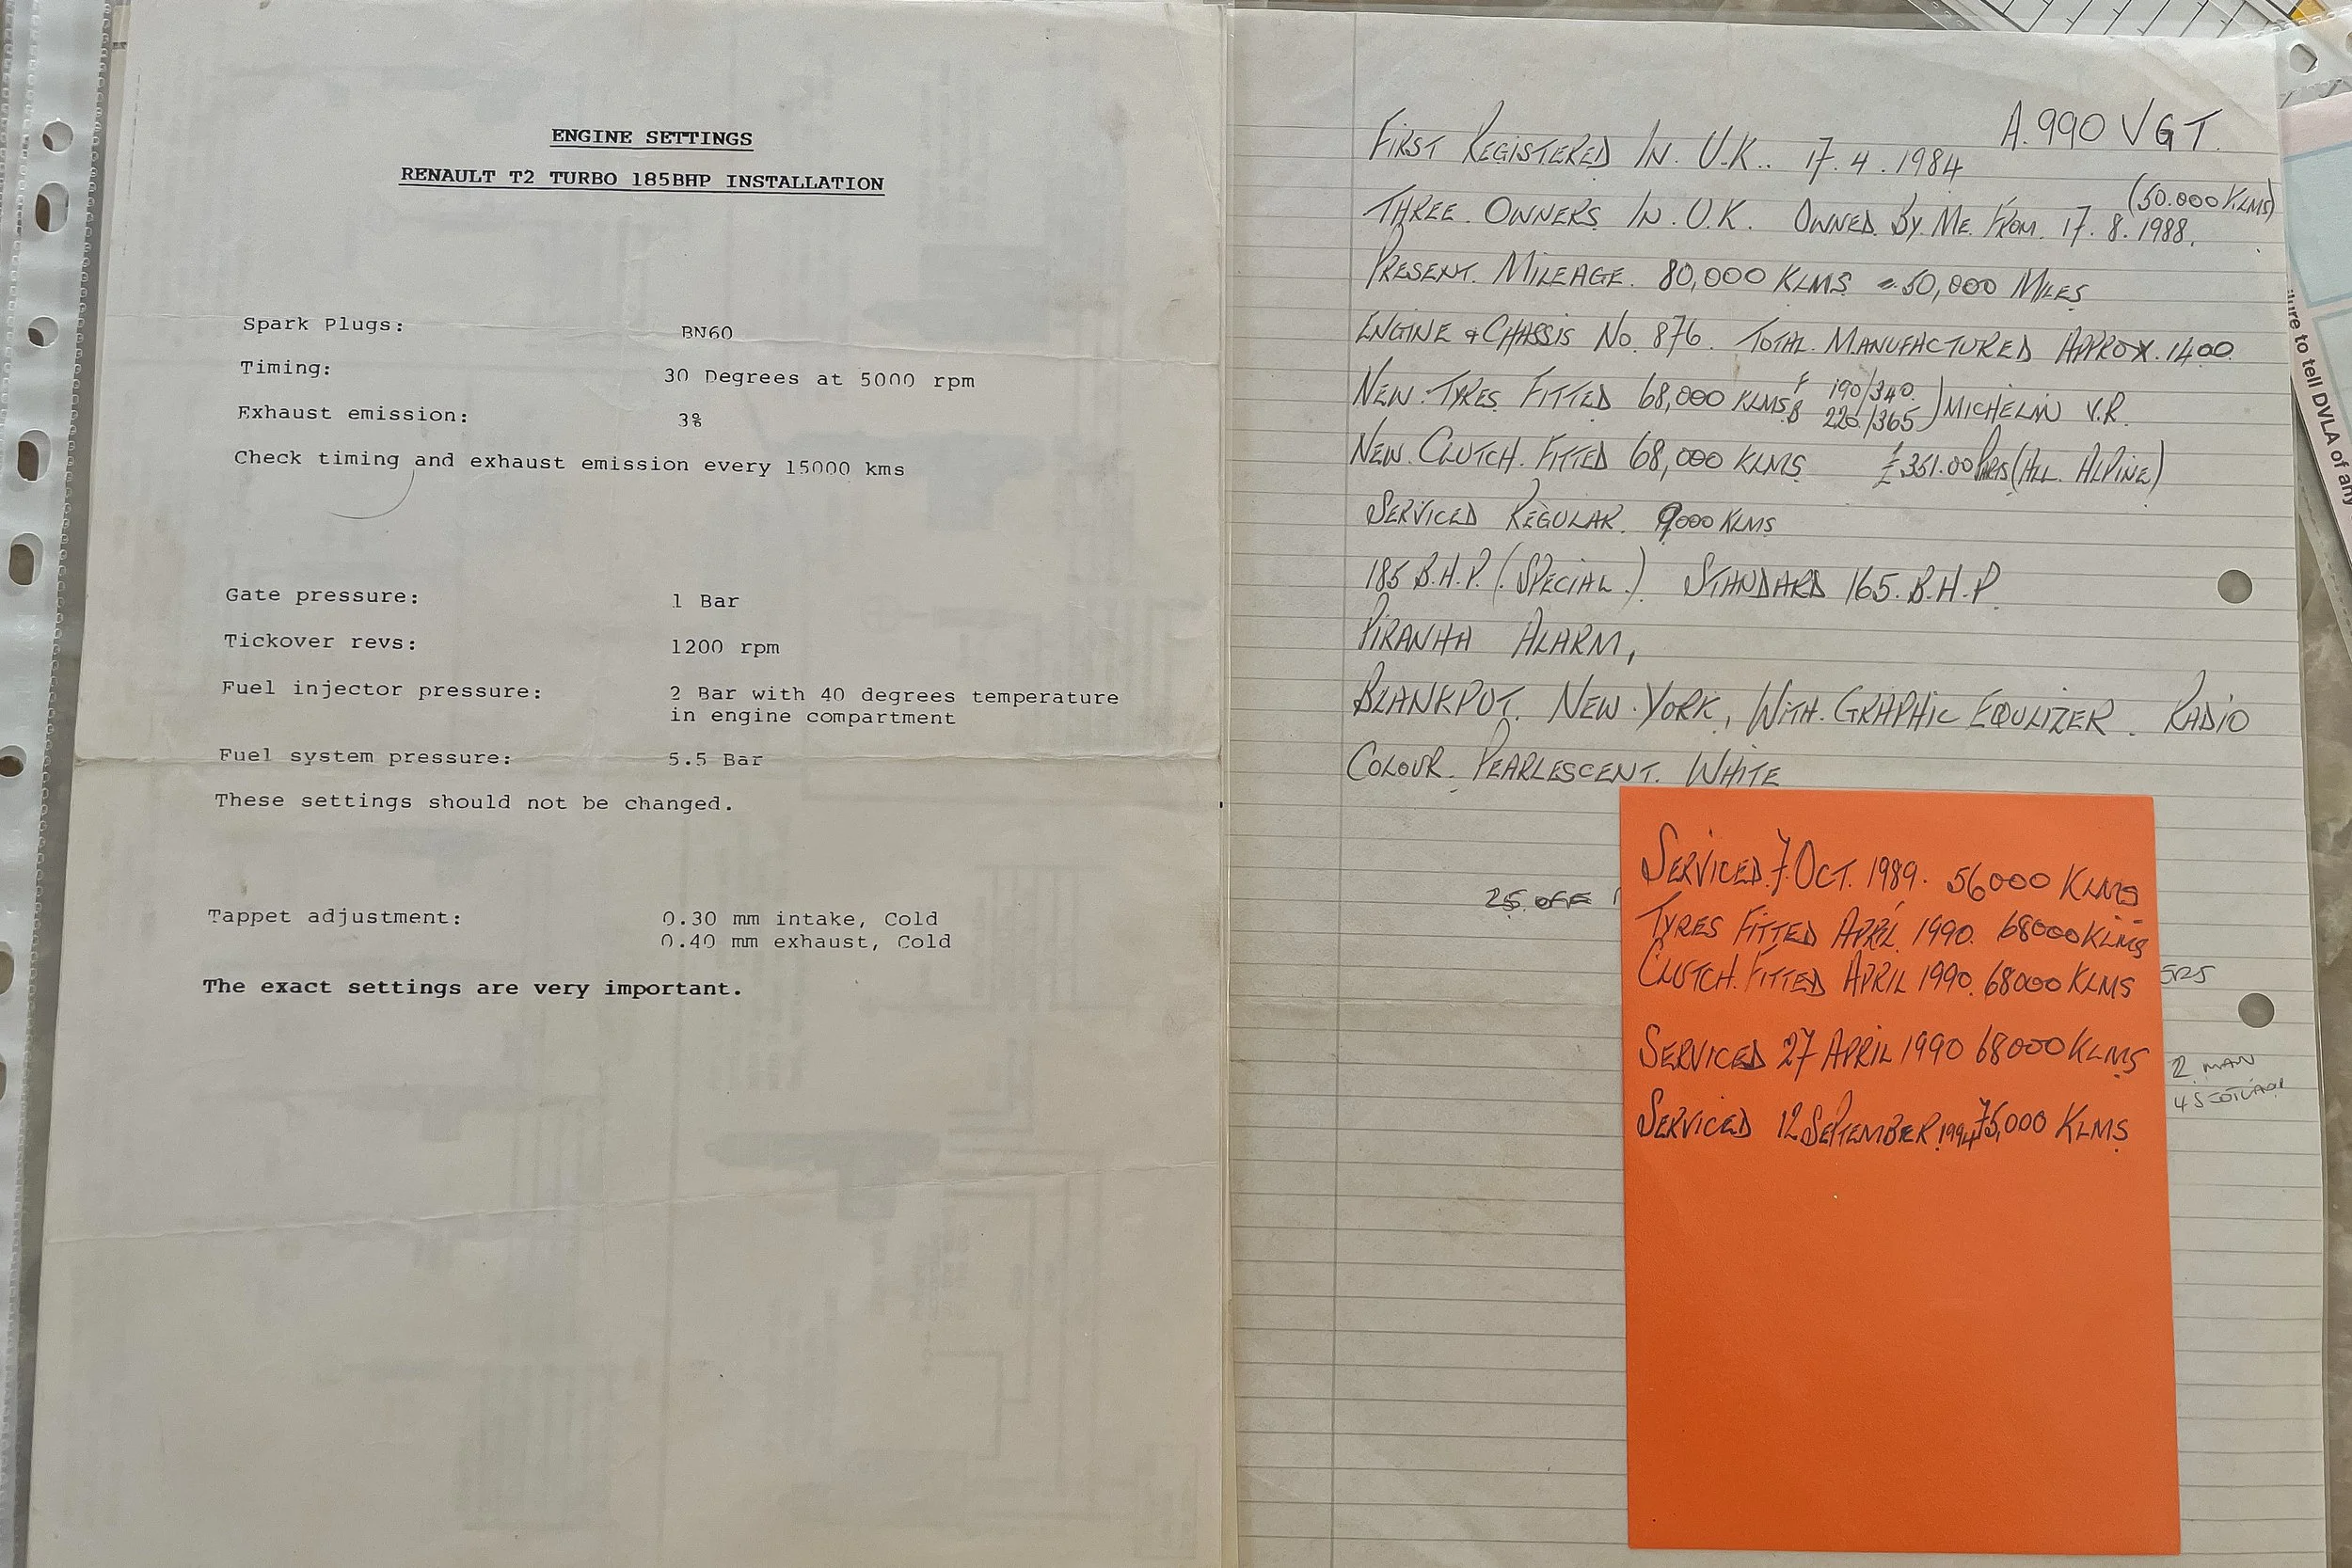 ENGINE SETTINGS
RENAULT T2 TURBO 185BHP INSTALLATION
Spark Plugs: BN60
Timing: 30 Degrees at 5000 rpm
Exhaust emission: 3%
Check timing and exhaust emission every 15000 kms
Gate pressure: 1 Bar
Tickover revs: 1200 rpm
Fuel injector pressure: 2 Bar with 40 degrees temperature
in engine compartment
Fuel system pressure: 5.5 Bar
These settings should not be changed.
Tappet adjustment: 0.30 mm intake, Cold
0.40 mm exhaust, Cold
The exact settings are very important.
A.990 VGT.
FIRST REGISTERED IN. U.K.. 17.4.1984
(50.000 KLMS)
THREE. OWNERS. IN. U.K. OWNED. BY. ME. FROM. 17.8.1988.
PRESENT. MILEAGE. 80,000 KLMS = 50,000 MILES
ENGINE & CHASSIS NO. 876. TOTAL. MANUFACTURED APPROX. 1400.
NEW. TYRES. FITTED 68,000 KLMS. F 190/340.
B 220/365) MICHELIN V.R.
NEW. CLUTCH. FITTED 68,000 KLMS £351.00 PARTS (ALL. ALPINE)
SERVICED REGULAR. 9000 KLMS
185 B.H.P. (SPECIAL.) STANDARD 165. B.H.P.
PIRANHA ALARM,
BLANKPOT. NEW. YORK, WITH. GRAPHIC EQULIZER. RADIO
COLOUR. PEARLESCENT. WHITE
25 OFF
ERS
2 MAN
4 SCOTLAND
SERVICED. 7 OCT. 1989. 56000 KLMS
TYRES FITTED APRIL 1990. 68000 KLMS
CLUTCH. FITTED APRIL 1990. 68000 KLMS
SERVICED 27 APRIL 1990 68000 KLMS
SERVICED 12 SEPTEMBER 1994 75,000 KLMS
ure to tell DVLA of any